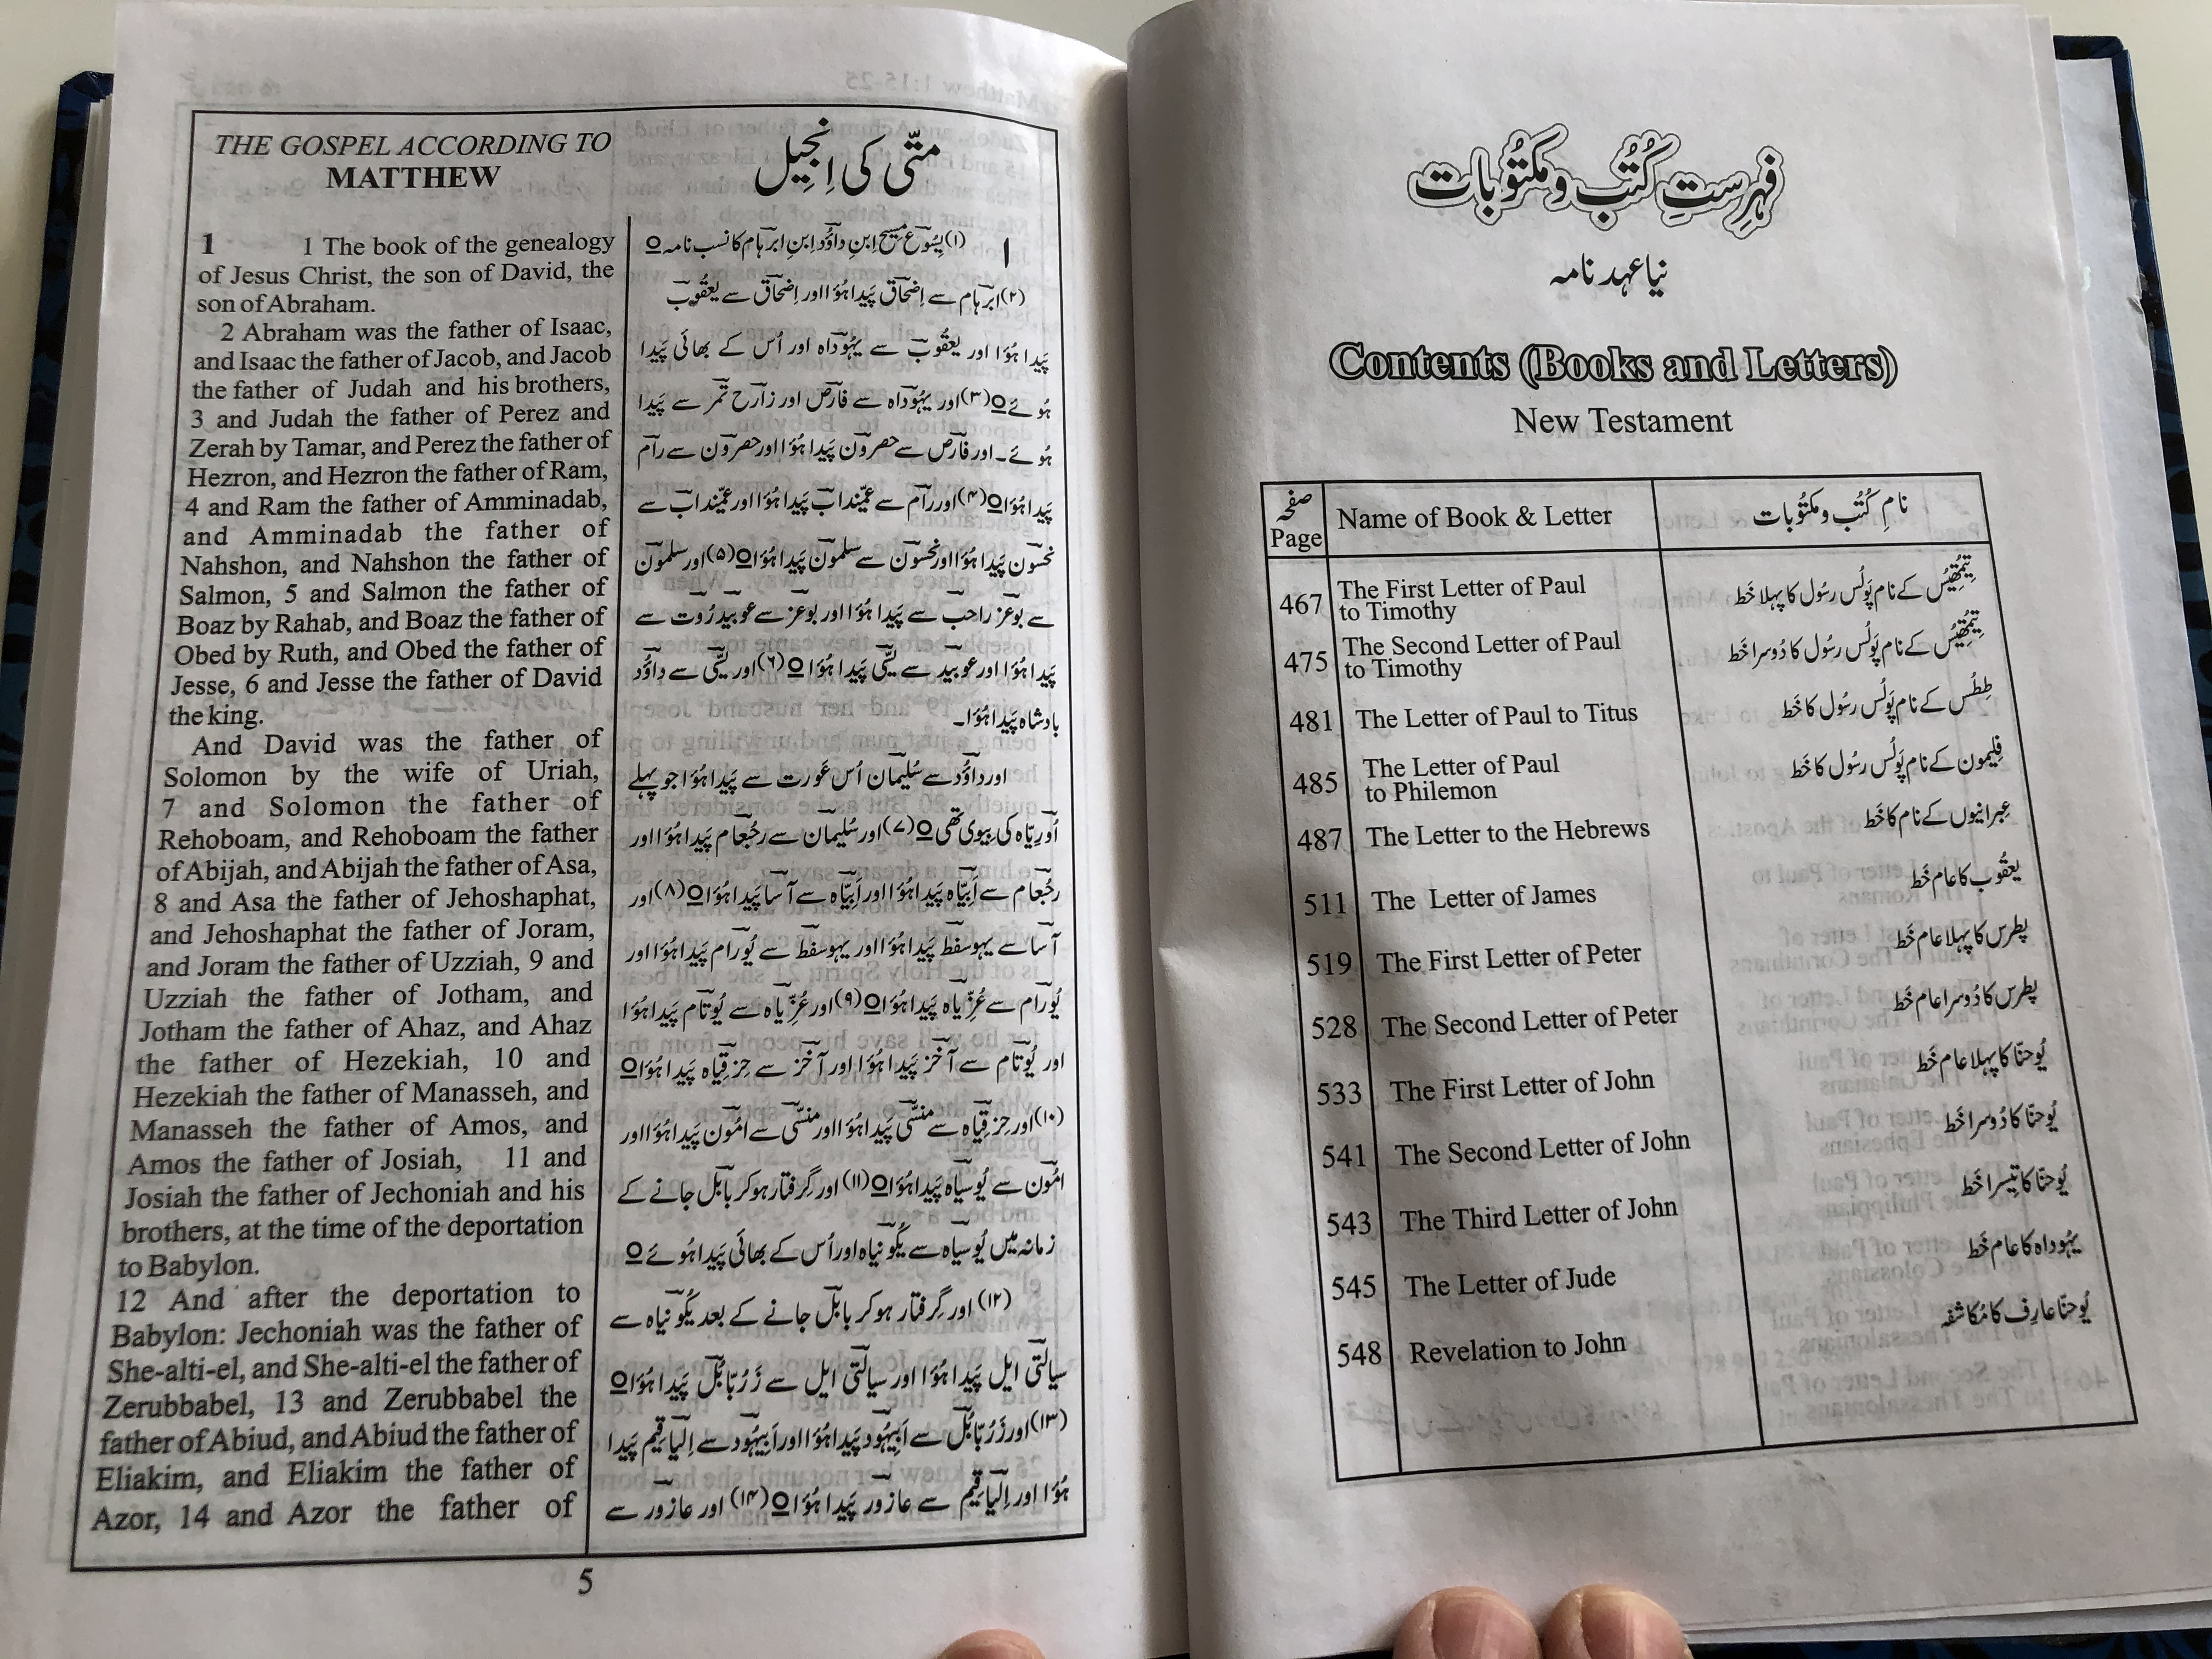 THE GOSPEL ACCORDING TO
MATTHEW
متّی کی اِنجیل
1 1 The book of the genealogy
of Jesus Christ, the son of David, the
son of Abraham.
2 Abraham was the father of Isaac,
and Isaac the father of Jacob, and Jacob
the father of Judah and his brothers,
3 and Judah the father of Perez and
Zerah by Tamar, and Perez the father of
Hezron, and Hezron the father of Ram,
4 and Ram the father of Amminadab,
and Amminadab the father of
Nahshon, and Nahshon the father of
Salmon, 5 and Salmon the father of
Boaz by Rahab, and Boaz the father of
Obed by Ruth, and Obed the father of
Jesse, 6 and Jesse the father of David
the king.
And David was the father of
Solomon by the wife of Uriah,
7 and Solomon the father of
Rehoboam, and Rehoboam the father
of Abijah, and Abijah the father of Asa,
8 and Asa the father of Jehoshaphat,
and Jehoshaphat the father of Joram,
and Joram the father of Uzziah, 9 and
Uzziah the father of Jotham, and
Jotham the father of Ahaz, and Ahaz
the father of Hezekiah, 10 and
Hezekiah the father of Manasseh, and
Manasseh the father of Amos, and
Amos the father of Josiah, 11 and
Josiah the father of Jechoniah and his
brothers, at the time of the deportation
to Babylon.
12 And after the deportation to
Babylon: Jechoniah was the father of
She-alti-el, and She-alti-el the father of
Zerubbabel, 13 and Zerubbabel the
father of Abiud, and Abiud the father of
Eliakim, and Eliakim the father of
Azor, 14 and Azor the father of
۱ (۱) یِسُوعؔ مسِیح اِبنِ داؤدؔ اِبنِ ابرہامؔ کا نسب نامہ ०
(۲) ابرہامؔ سے اِضحاقؔ پَیدا ہُؤا اور اِضحاقؔ سے یعقُوبؔ
پَیدا ہُؤا اور یعقُوبؔ سے یہُوداہؔ اور اُس کے بھائی پَیدا
ہُوئے ० (۳) اور یہُوداہؔ سے فارصؔ اور زارحؔ تمرؔ سے پَیدا
ہُوئے۔ اور فارصؔ سے حصرونؔ پَیدا ہُؤا اور حصرونؔ سے رامؔ
پَیدا ہُؤا ० (۴) اور رامؔ سے عمِّیندابؔ پَیدا ہُؤا اور عمِّیندابؔ سے
نحسونؔ پَیدا ہُؤا اور نحسونؔ سے سلمونؔ پَیدا ہُؤا ० (۵) اور سلمونؔ
سے بوعزؔ راحبؔ سے پَیدا ہُؤا اور بوعزؔ سے عوبیدؔ رُوتؔ سے
پَیدا ہُؤا اور عوبیدؔ سے یسّیؔ پَیدا ہُؤا ० (۶) اور یسّیؔ سے داؤدؔ
بادشاہ پَیدا ہُؤا۔
اور داؤدؔ سے سُلیمانؔ اُس عَورت سے پَیدا ہُؤا جو پہلے
اُورِیّاہؔ کی بِیوی تھی ० (۷) اور سُلیمانؔ سے رحُبعامؔ پَیدا ہُؤا اور
رحُبعامؔ سے ابیّاہؔ پَیدا ہُؤا اور ابیّاہؔ سے آساؔ پَیدا ہُؤا ० (۸) اور
آساؔ سے یہوسفطؔ پَیدا ہُؤا اور یہوسفطؔ سے یُورامؔ پَیدا ہُؤا اور
یُورامؔ سے عُزِّیاہؔ پَیدا ہُؤا ० (۹) اور عُزِّیاہؔ سے یُوتامؔ پَیدا ہُؤا
اور یُوتامؔ سے آخزؔ پَیدا ہُؤا اور آخزؔ سے حِزقِیاہؔ پَیدا ہُؤا ०
(۱۰) اور حِزقِیاہؔ سے منسّیؔ پَیدا ہُؤا اور منسّیؔ سے امُونؔ پَیدا ہُؤا اور
امُونؔ سے یُوسیاہؔ پَیدا ہُؤا ० (۱۱) اور گرِفتار ہو کر بابلؔ جانے کے
زمانہ میں یُوسیاہؔ سے یکُونیاہؔ اور اُس کے بھائی پَیدا ہُوئے ०
(۱۲) اور گرِفتار ہو کر بابلؔ جانے کے بعد یکُونیاہؔ سے
سیالتی ایلؔ پَیدا ہُؤا اور سیالتی ایلؔ سے زرُبّابلؔ پَیدا ہُؤا ०
(۱۳) اور زرُبّابلؔ سے ابیہُودؔ پَیدا ہُؤا اور ابیہُودؔ سے اِلیاقیمؔ پَیدا
ہُؤا اور اِلیاقیمؔ سے عازورؔ پَیدا ہُؤا ० (۱۴) اور عازورؔ سے
5
فہرستِ کُتُب و مکتُوبات
نیا عہد نامہ
Contents (Books and Letters)
New Testament
صفحہ
Page
Name of Book & Letter
نامِ کُتُب و مکتُوبات
467 The First Letter of Paul
to Timothy
تِیمُتھِیُس کے نام پَولُس رسُول کا پہلا خَط
475 The Second Letter of Paul
to Timothy
تِیمُتھِیُس کے نام پَولُس رسُول کا دُوسرا خَط
481 The Letter of Paul to Titus
طِطُس کے نام پَولُس رسُول کا خَط
485 The Letter of Paul
to Philemon
فِلیمون کے نام پَولُس رسُول کا خَط
487 The Letter to the Hebrews
عِبرانیوں کے نام کا خَط
511 The Letter of James
یعقُوب کا عام خَط
519 The First Letter of Peter
پطرس کا پہلا عام خَط
528 The Second Letter of Peter
پطرس کا دُوسرا عام خَط
533 The First Letter of John
یُوحنّا کا پہلا عام خَط
541 The Second Letter of John
یُوحنّا کا دُوسرا خَط
543 The Third Letter of John
یُوحنّا کا تیسرا خَط
545 The Letter of Jude
یہُوداہ کا عام خَط
548 Revelation to John
یُوحنّا عارِف کا مُکاشفہ